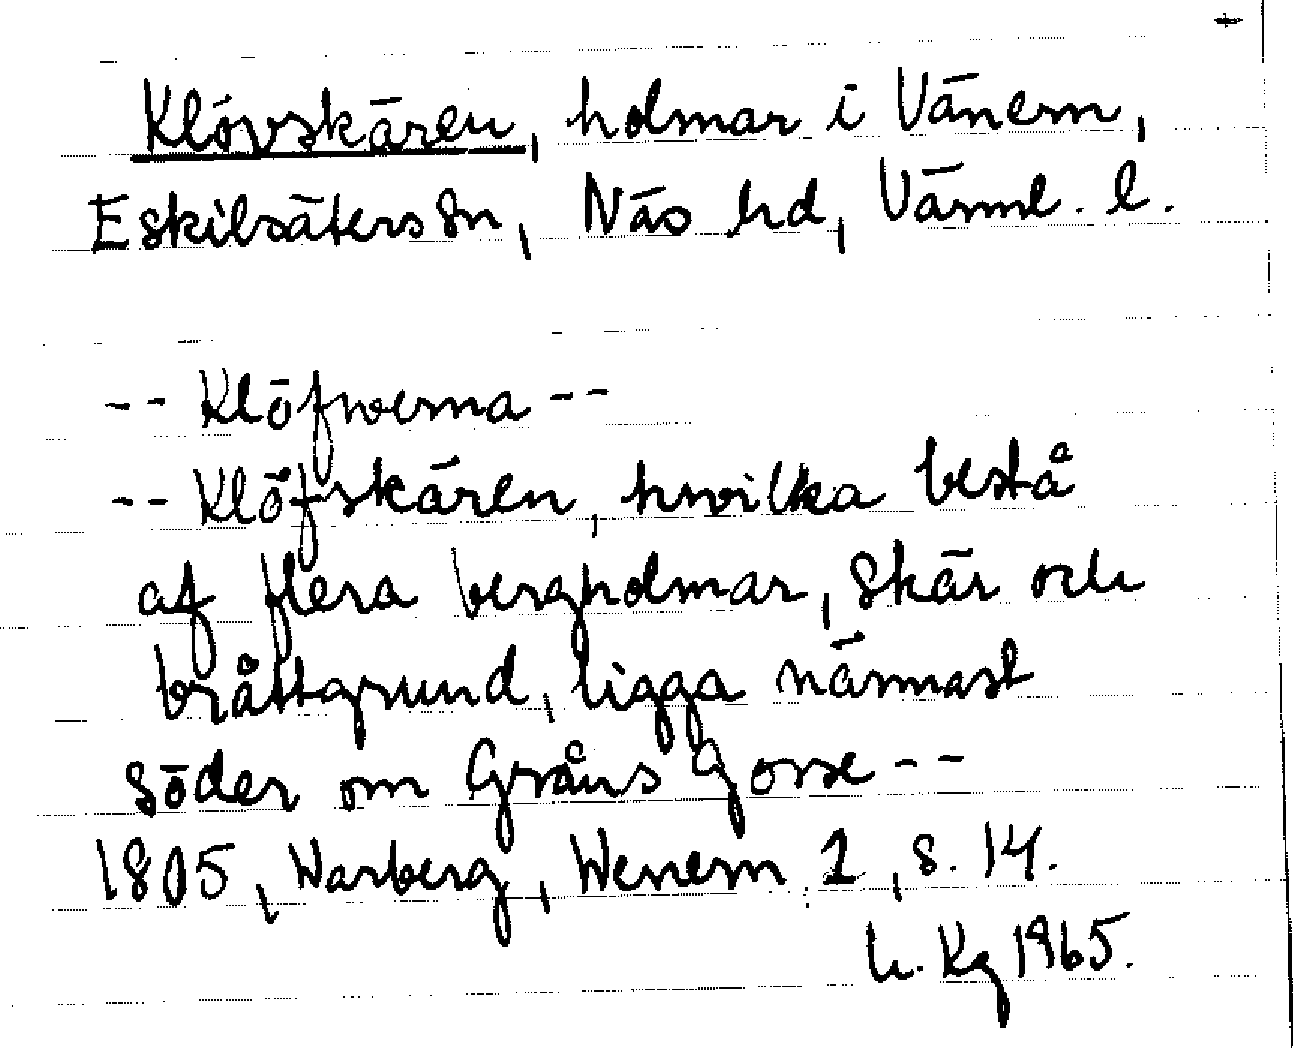 Klövskären, holmar i Vänern,
Eskilsäters sn, Näs hd, Värml. l.
-- Klöfwerna --
-- Klöfskären, hwilka bestå
af flera bergholmar, skär och
bråttgrund, ligga närmast
söder om Gråns Gorse --
1805, Warberg, Wenern 1, s. 14.
L. Kg 1965.